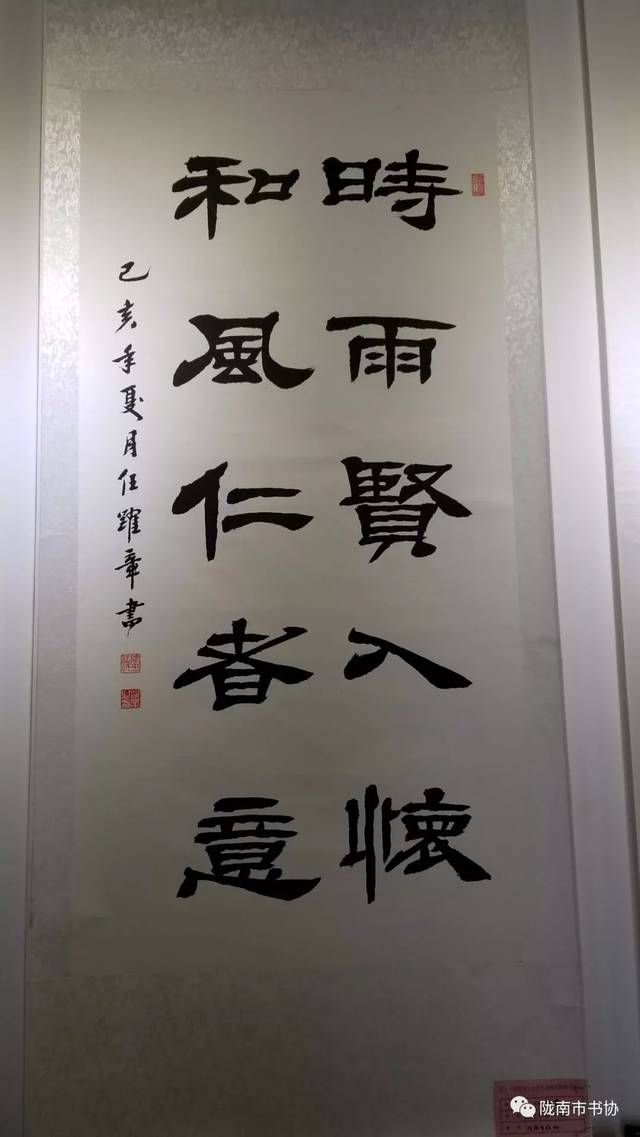 時雨賢入懷
和風仁者意
己亥年夏月任躍章書
陇南市书协